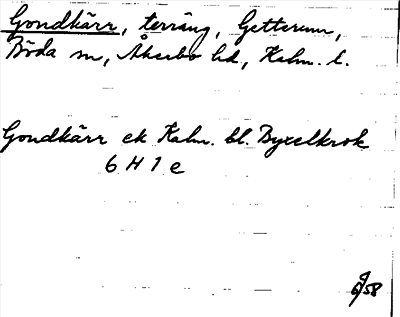 Gondkärr, terräng, Getterum,
Böda sn, Åkerbo hd, Kalm. l.
Gondkärr ek Kalm. bl. Byxelkrok
6 H 1 e
6/58